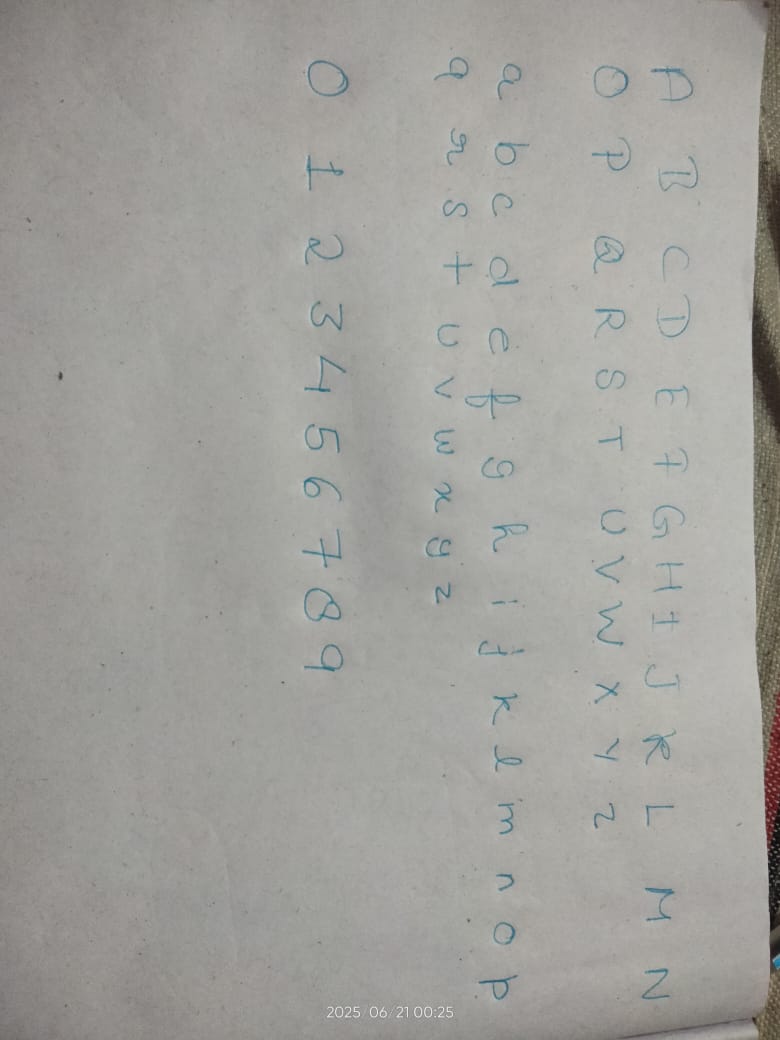 A B C D E F G H I J K L M N
O P Q R S T U V W X Y Z
a b c d e f g h i j k l m n o p
q r s t u v w x y z
0 1 2 3 4 5 6 7 8 9
2025/06/21 00:25